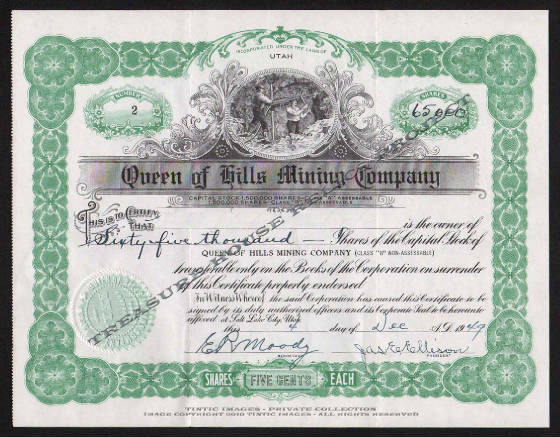 INCORPORATED UNDER THE LAWS OF
UTAH
NUMBER
2
SHARES
65,000
Queen of Hills Mining Company
CAPITAL STOCK 1,500,000 SHARES-CLASS "A" ASSESSABLE
1,500,000 SHARES-CLASS "B" NON-ASSESSABLE
THIS IS TO CERTIFY
THAT
is the owner of
Sixty-five thousand Shares of the Capital Stock of
QUEEN OF HILLS MINING COMPANY (CLASS "B" NON-ASSESSABLE)
transferable only on the Books of the Corporation on surrender
of this Certificate properly endorsed
In Witness Whereof the said Corporation has caused this Certificate to be
signed by its duly authorized officers and its Corporate Seal to be hereunto
affixed at Salt Lake City, Utah
this 4 day of Dec A.D. 1949
E R Moody Jas E Ellison
SECRETARY PRESIDENT
SHARES FIVE CENTS EACH
TREASURE
TINTIC IMAGES - PRIVATE COLLECTION
IMAGE COPYRIGHT 2010 TINTIC IMAGES - ALL RIGHTS RESERVED